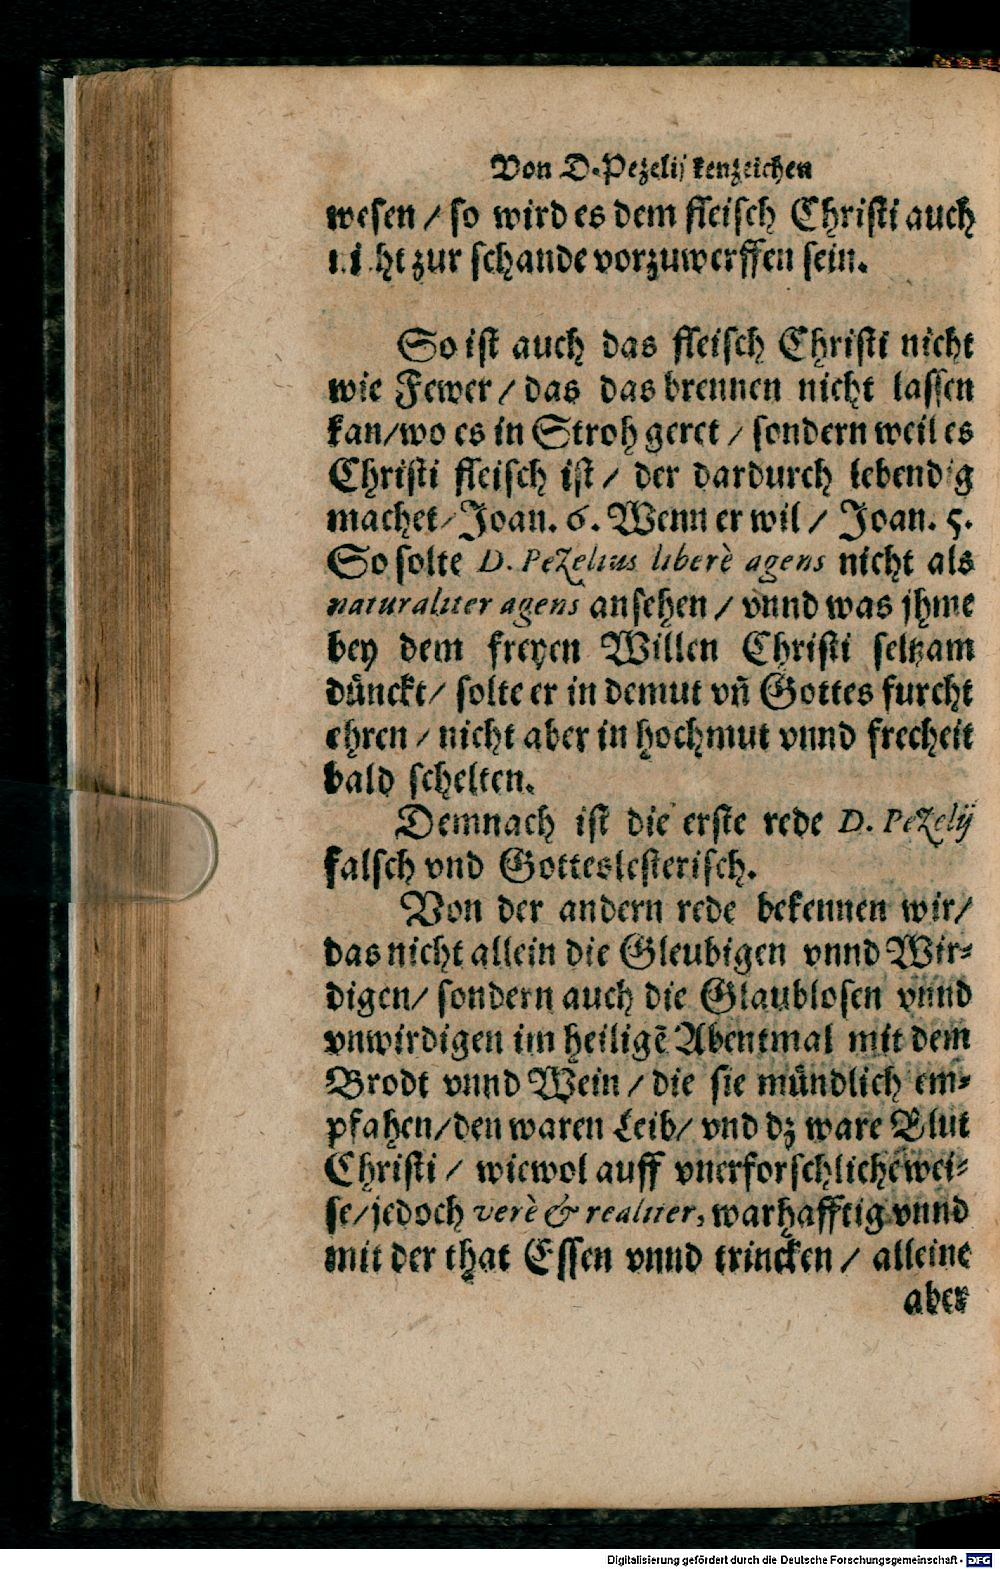 Von D. Pezelij kenzeichen
wesen / so wird es dem fleisch Christi auch
nicht zur schande vorzuwerffen sein.
So ist auch das fleisch Christi nicht
wie Fewer / das das brennen nicht lassen
kan/wo es in Stroh geret / sondern weil es
Christi fleisch ist / der dardurch lebendig
machet/Joan. 6. Wenn er wil / Joan. 5.
So solte D. Pezelius liberè agens nicht als
naturaliter agens ansehen / vnnd was jhme
bey dem freyen Willen Christi seltzam
dünckt/ solte er in demut vn̄ Gottes furcht
ehren / nicht aber in hochmut vnnd frecheit
bald schelten.
Demnach ist die erste rede D. Pezelij
falsch vnd Gotteslesterisch.
Von der andern rede bekennen wir/
das nicht allein die Gleubigen vnnd Wir-
digen/ sondern auch die Glaublosen vnnd
vnwirdigen im heiligē Abentmal mit dem
Brodt vnnd Wein / die sie mündlich em-
pfahen/den waren Leib/ vnd dz ware Blut
Christi / wiewol auff vnerforschliche wei-
se/jedoch verè & realiter, warhafftig vnnd
mit der that Essen vnnd trincken / alleine
aber
Digitalisierung gefördert durch die Deutsche Forschungsgemeinschaft - DFG